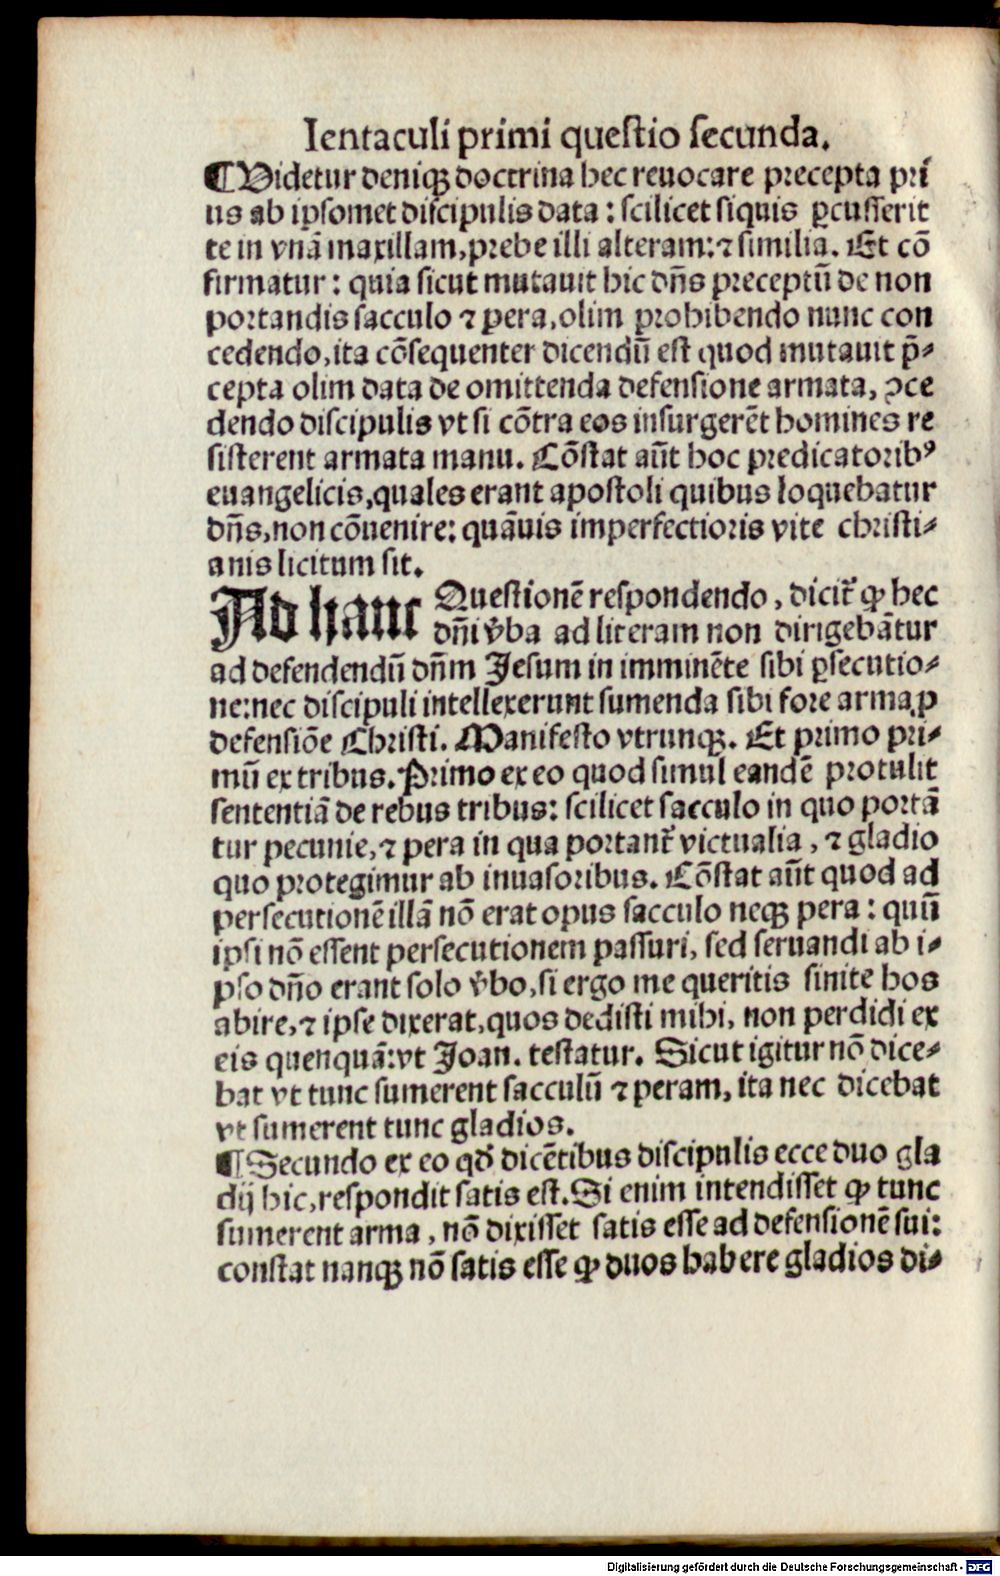 Ientaculi primi questio secunda.
¶Uidetur deniqꝫ doctrina hec reuocare precepta pri
us ab ipsomet discipulis data : scilicet siquis ꝑcusserit
te in vnã maxillam, prebe illi alteram: ⁊ similia. Et cõ
firmatur : quia sicut mutauit hic dñs preceptũ de non
portandis sacculo ⁊ pera, olim prohibendo nunc con
cedendo, ita cõsequenter dicendũ est quod mutauit p̃⸗
cepta olim data de omittenda defensione armata, ꝯce
dendo discipulis vt si cõtra eos insurgerẽt homines re
sisterent armata manu. Cõstat aũt hoc predicatoribꝰ
euangelicis, quales erant apostoli quibus loquebatur
dñs, non cõuenire: quãuis imperfectioris vite christi⸗
anis licitum sit.
Ad hanc Questionẽ respondendo, dicit̃ ꝙ hec
dñi v̾ba ad literam non dirigebãtur
ad defendendũ dñm Jesum in imminẽte sibi ꝑsecutio⸗
ne: nec discipuli intellexerunt sumenda sibi fore arma ꝓ
defensiõe Christi. Manifesto vtrunqꝫ. Et primo pri⸗
mũ ex tribus. Primo ex eo quod simul eandẽ protulit
sententiã de rebus tribus: scilicet sacculo in quo portã
tur pecunie, ⁊ pera in qua portant̃ victualia, ⁊ gladio
quo protegimur ab inuasoribus. Cõstat aũt quod ad
persecutionẽ illã nõ erat opus sacculo neqꝫ pera : quũ
ipsi nõ essent persecutionem passuri, sed seruandi ab i⸗
pso dño erant solo v̾bo, si ergo me queritis sinite hos
abire, ⁊ ipse dixerat, quos dedisti mihi, non perdidi ex
eis quenquã: vt Joan. testatur. Sicut igitur nõ dice⸗
bat vt tunc sumerent sacculũ ⁊ peram, ita nec dicebat
vt sumerent tunc gladios.
¶Secundo ex eo qđ dicẽtibus discipulis ecce duo gla
dij hic, respondit satis est. Si enim intendisset ꝙ tunc
sumerent arma, nõ dixisset satis esse ad defensionẽ sui:
constat nanqꝫ nõ satis esse ꝙ duos habere gladios di⸗
Digitalisierung gefördert durch die Deutsche Forschungsgemeinschaft - DFG